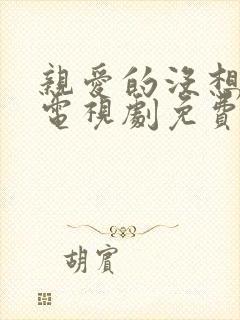 親愛的沒想
電視劇免費
胡賓